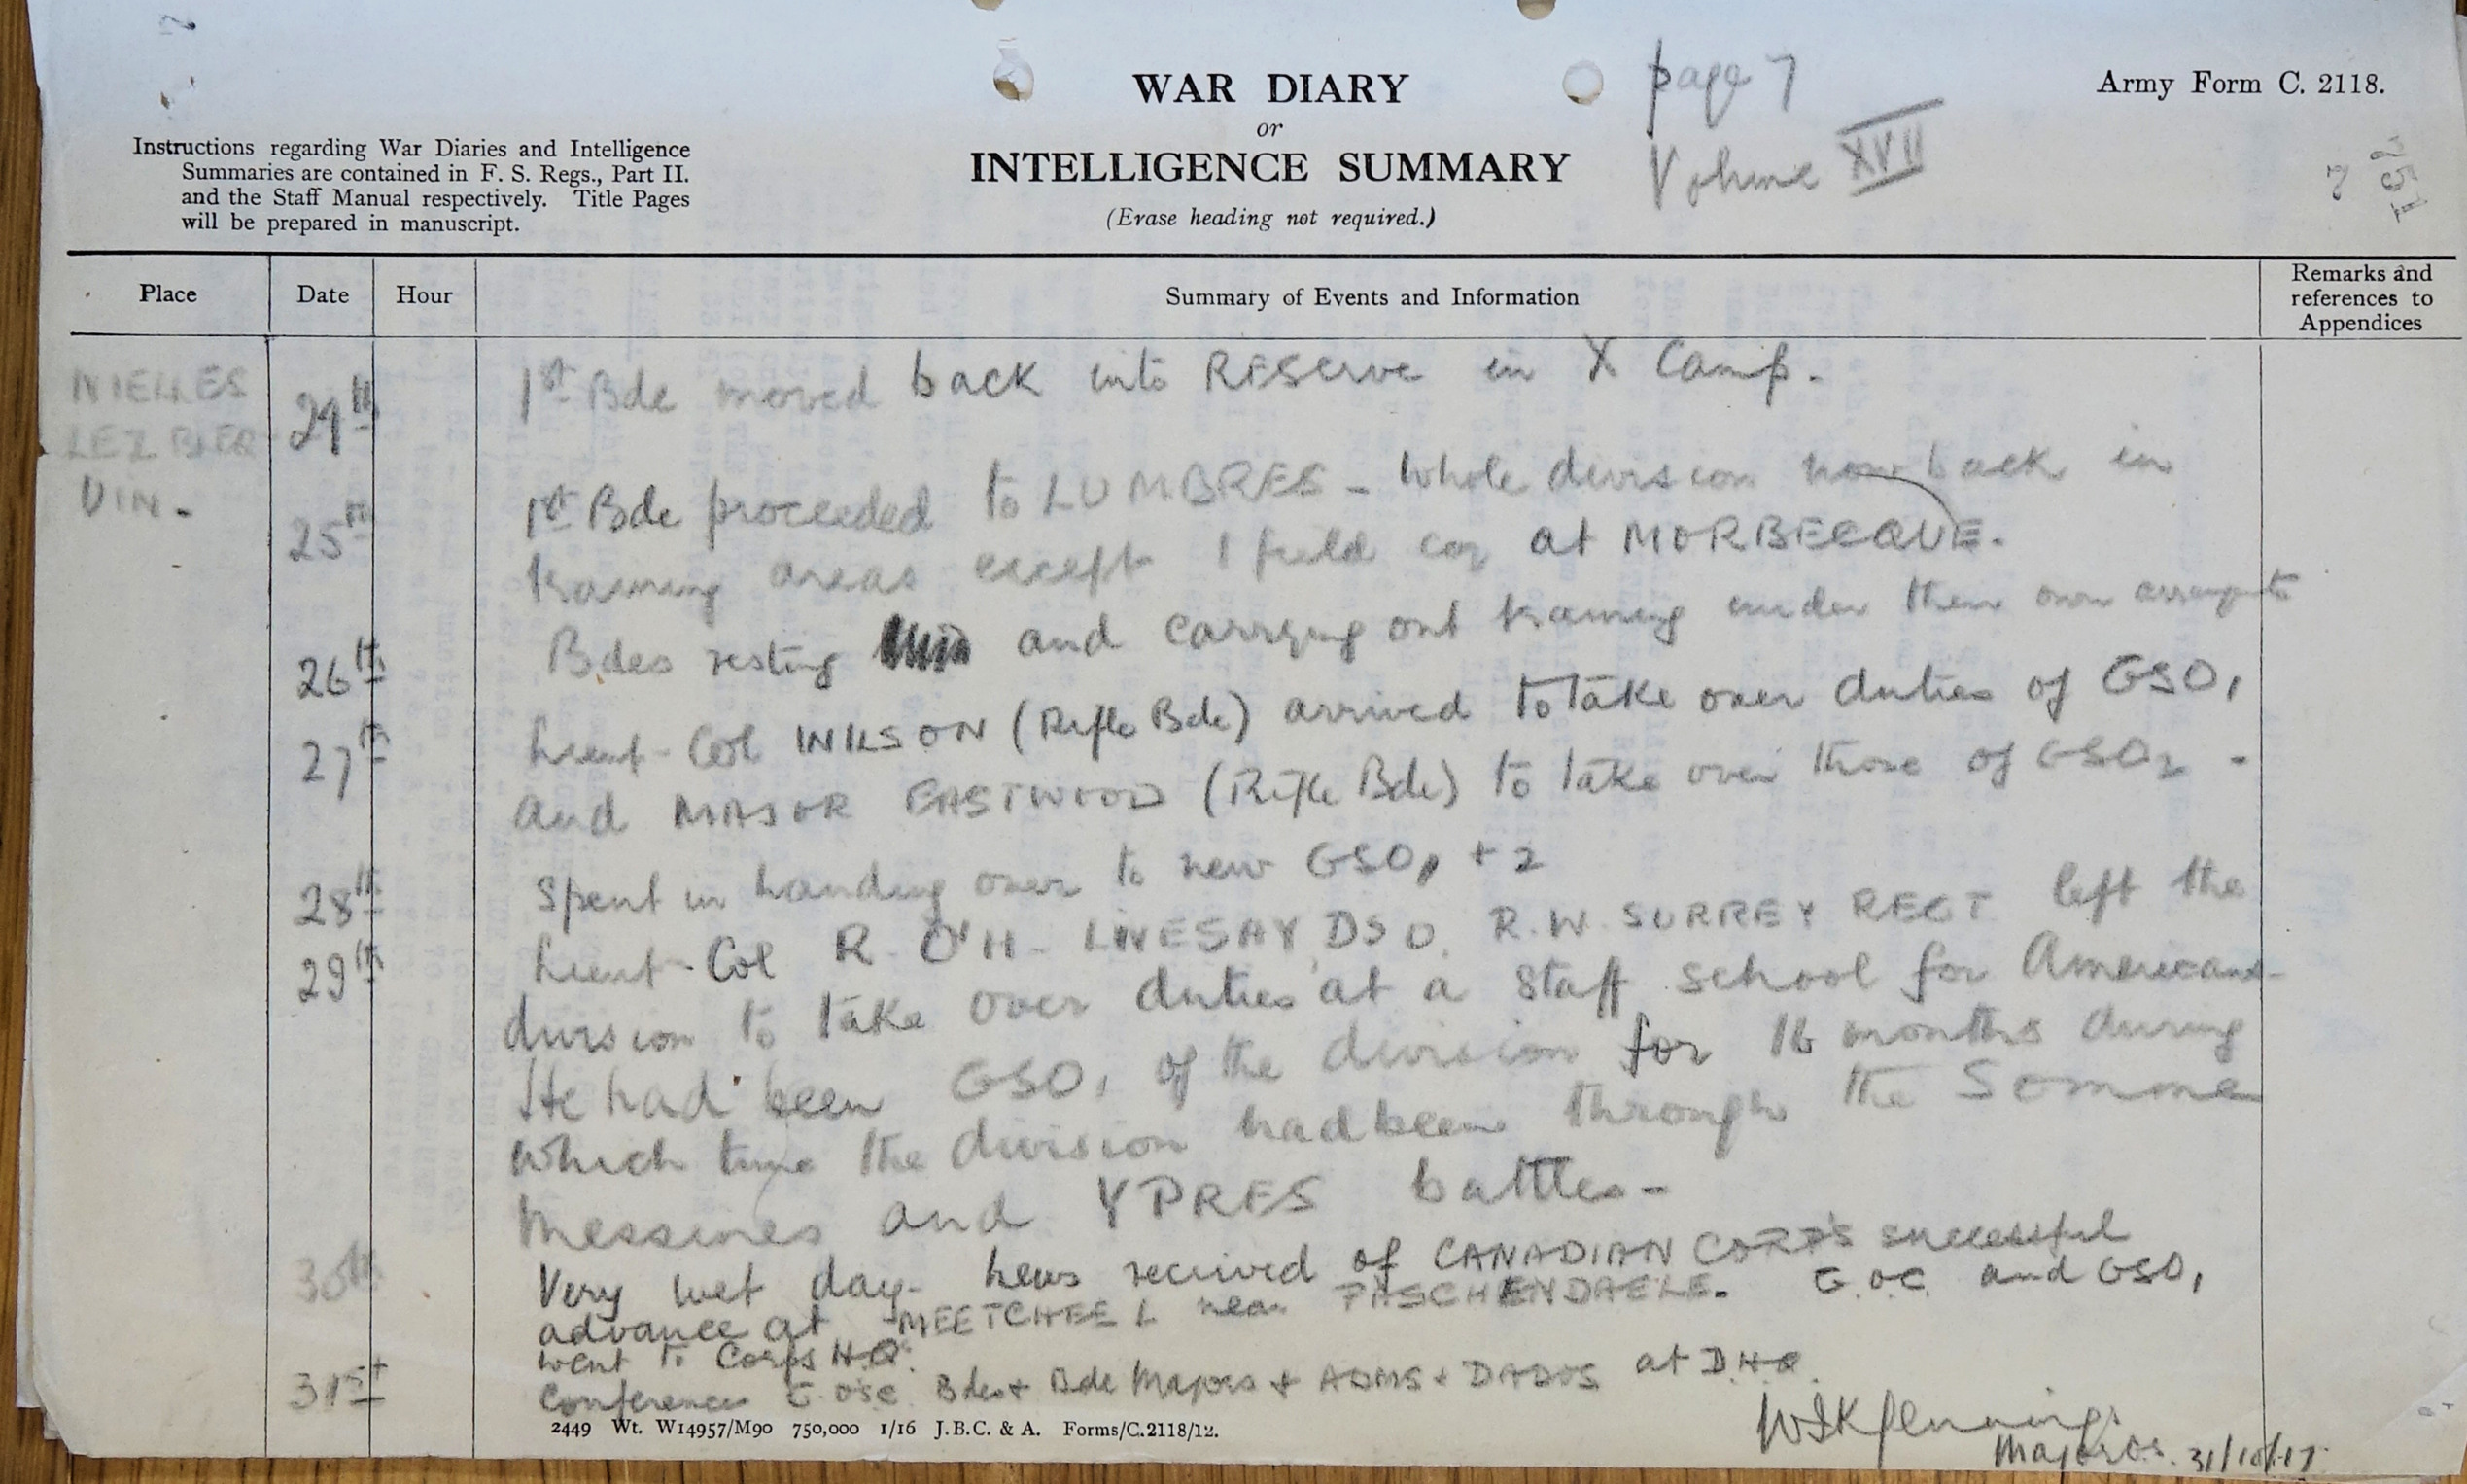 WAR DIARY
or
INTELLIGENCE SUMMARY
(Erase heading not required.)
page 7
Volume XVII
Army Form C. 2118.
Instructions regarding War Diaries and Intelligence
Summaries are contained in F. S. Regs., Part II.
and the Staff Manual respectively. Title Pages
will be prepared in manuscript.
Place Date Hour Summary of Events and Information Remarks and references to Appendices
NIELLES
LEZ BLER
UIN.
24th 1st Bde moved back into RESERVE in X Camp.
25th 1st Bde proceeded to LUMBRES - Whole division now back in
training areas except 1 field coy at MORBECQUE.
26th Bdes resting and carrying out training under their own arrangts
27th Lieut-Col WILSON (Rifle Bde) arrived to take over duties of GSO1
and MAJOR EASTWOOD (Rifle Bde) to take over those of GSO2 -
28th Spent in handing over to new GSO1 + 2
29th Lieut-Col R. O'H. LIVESAY DSO. R.W. SURREY REGT left the
division to take over duties at a Staff school for Americans-
He had been GSO1 of the division for 16 months during
which time the division had been through the Somme
Messines and YPRES battles-
30th Very wet day- News received of CANADIAN CORPS successful
advance at MEETCHEEL near PASCHENDAELE. G.O.C. and GSO1
went to Corps H.Q.
31st Conferences G.O.C. Bdes + Bde Majors + ADMS + DADOS at D.H.Q.
2449 Wt. W14957/M90 750,000 1/16 J.B.C. & A. Forms/C.2118/12.
Major G.S. 31/10/17